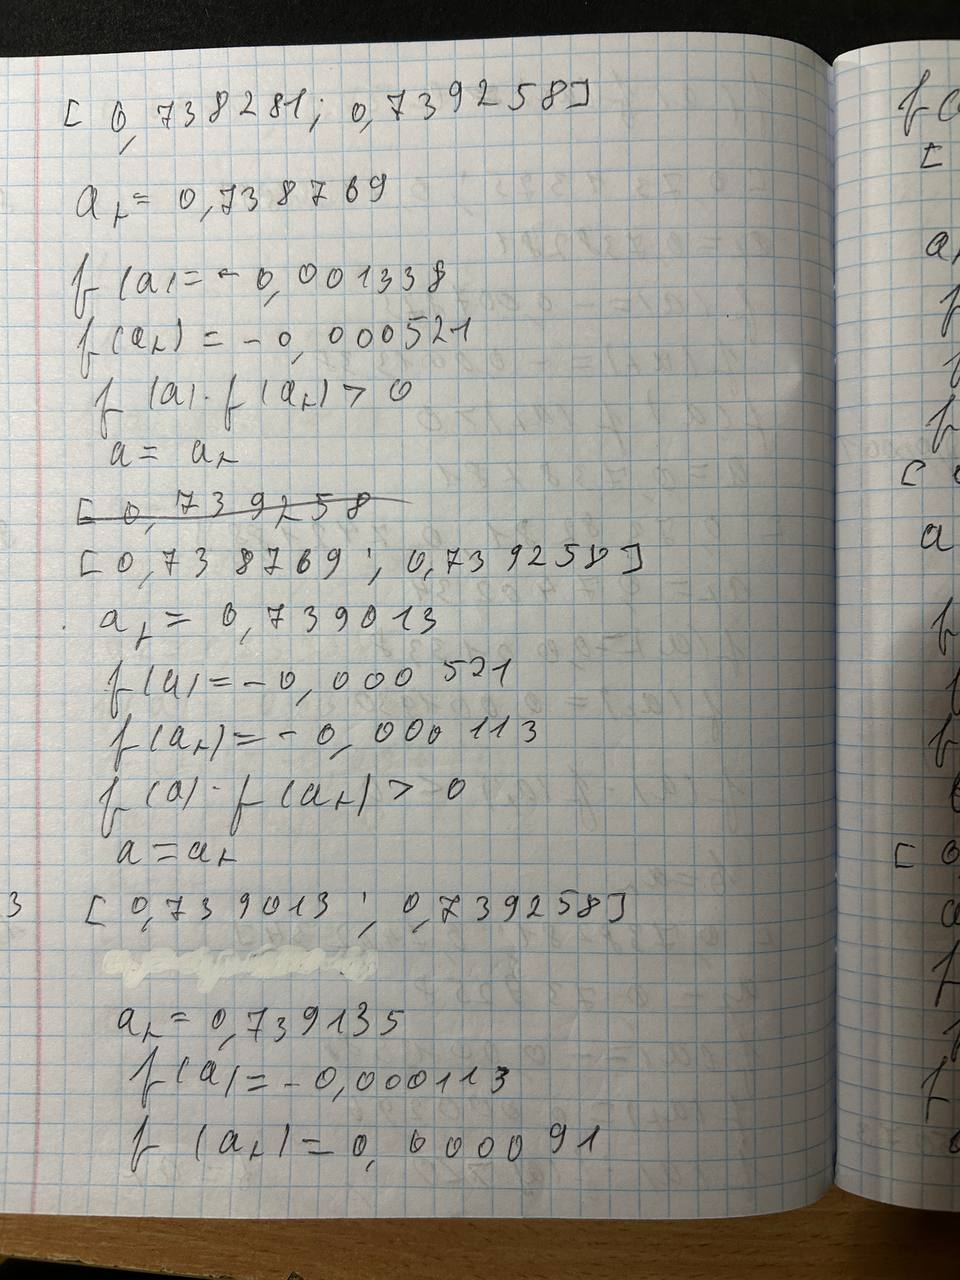 [ 0, 738281; 0,739258]
aᵣ= 0,738769
f(a)= - 0,001338
f(aᵣ) = - 0,000521
f(a)· f(aᵣ) > 0
a= aᵣ
[ 0, 739258
[0,738769 ; 0,739258]
aᵣ = 0,739013
f(a) = -0,000 521
f(aᵣ)= - 0,000 113
f(a) · f(aᵣ) > 0
a = aᵣ
3
[ 0,739013 ; 0,739258]
aᵣ = 0,739135
f(a)= - 0,000113
f (aᵣ) = 0, 0000 91